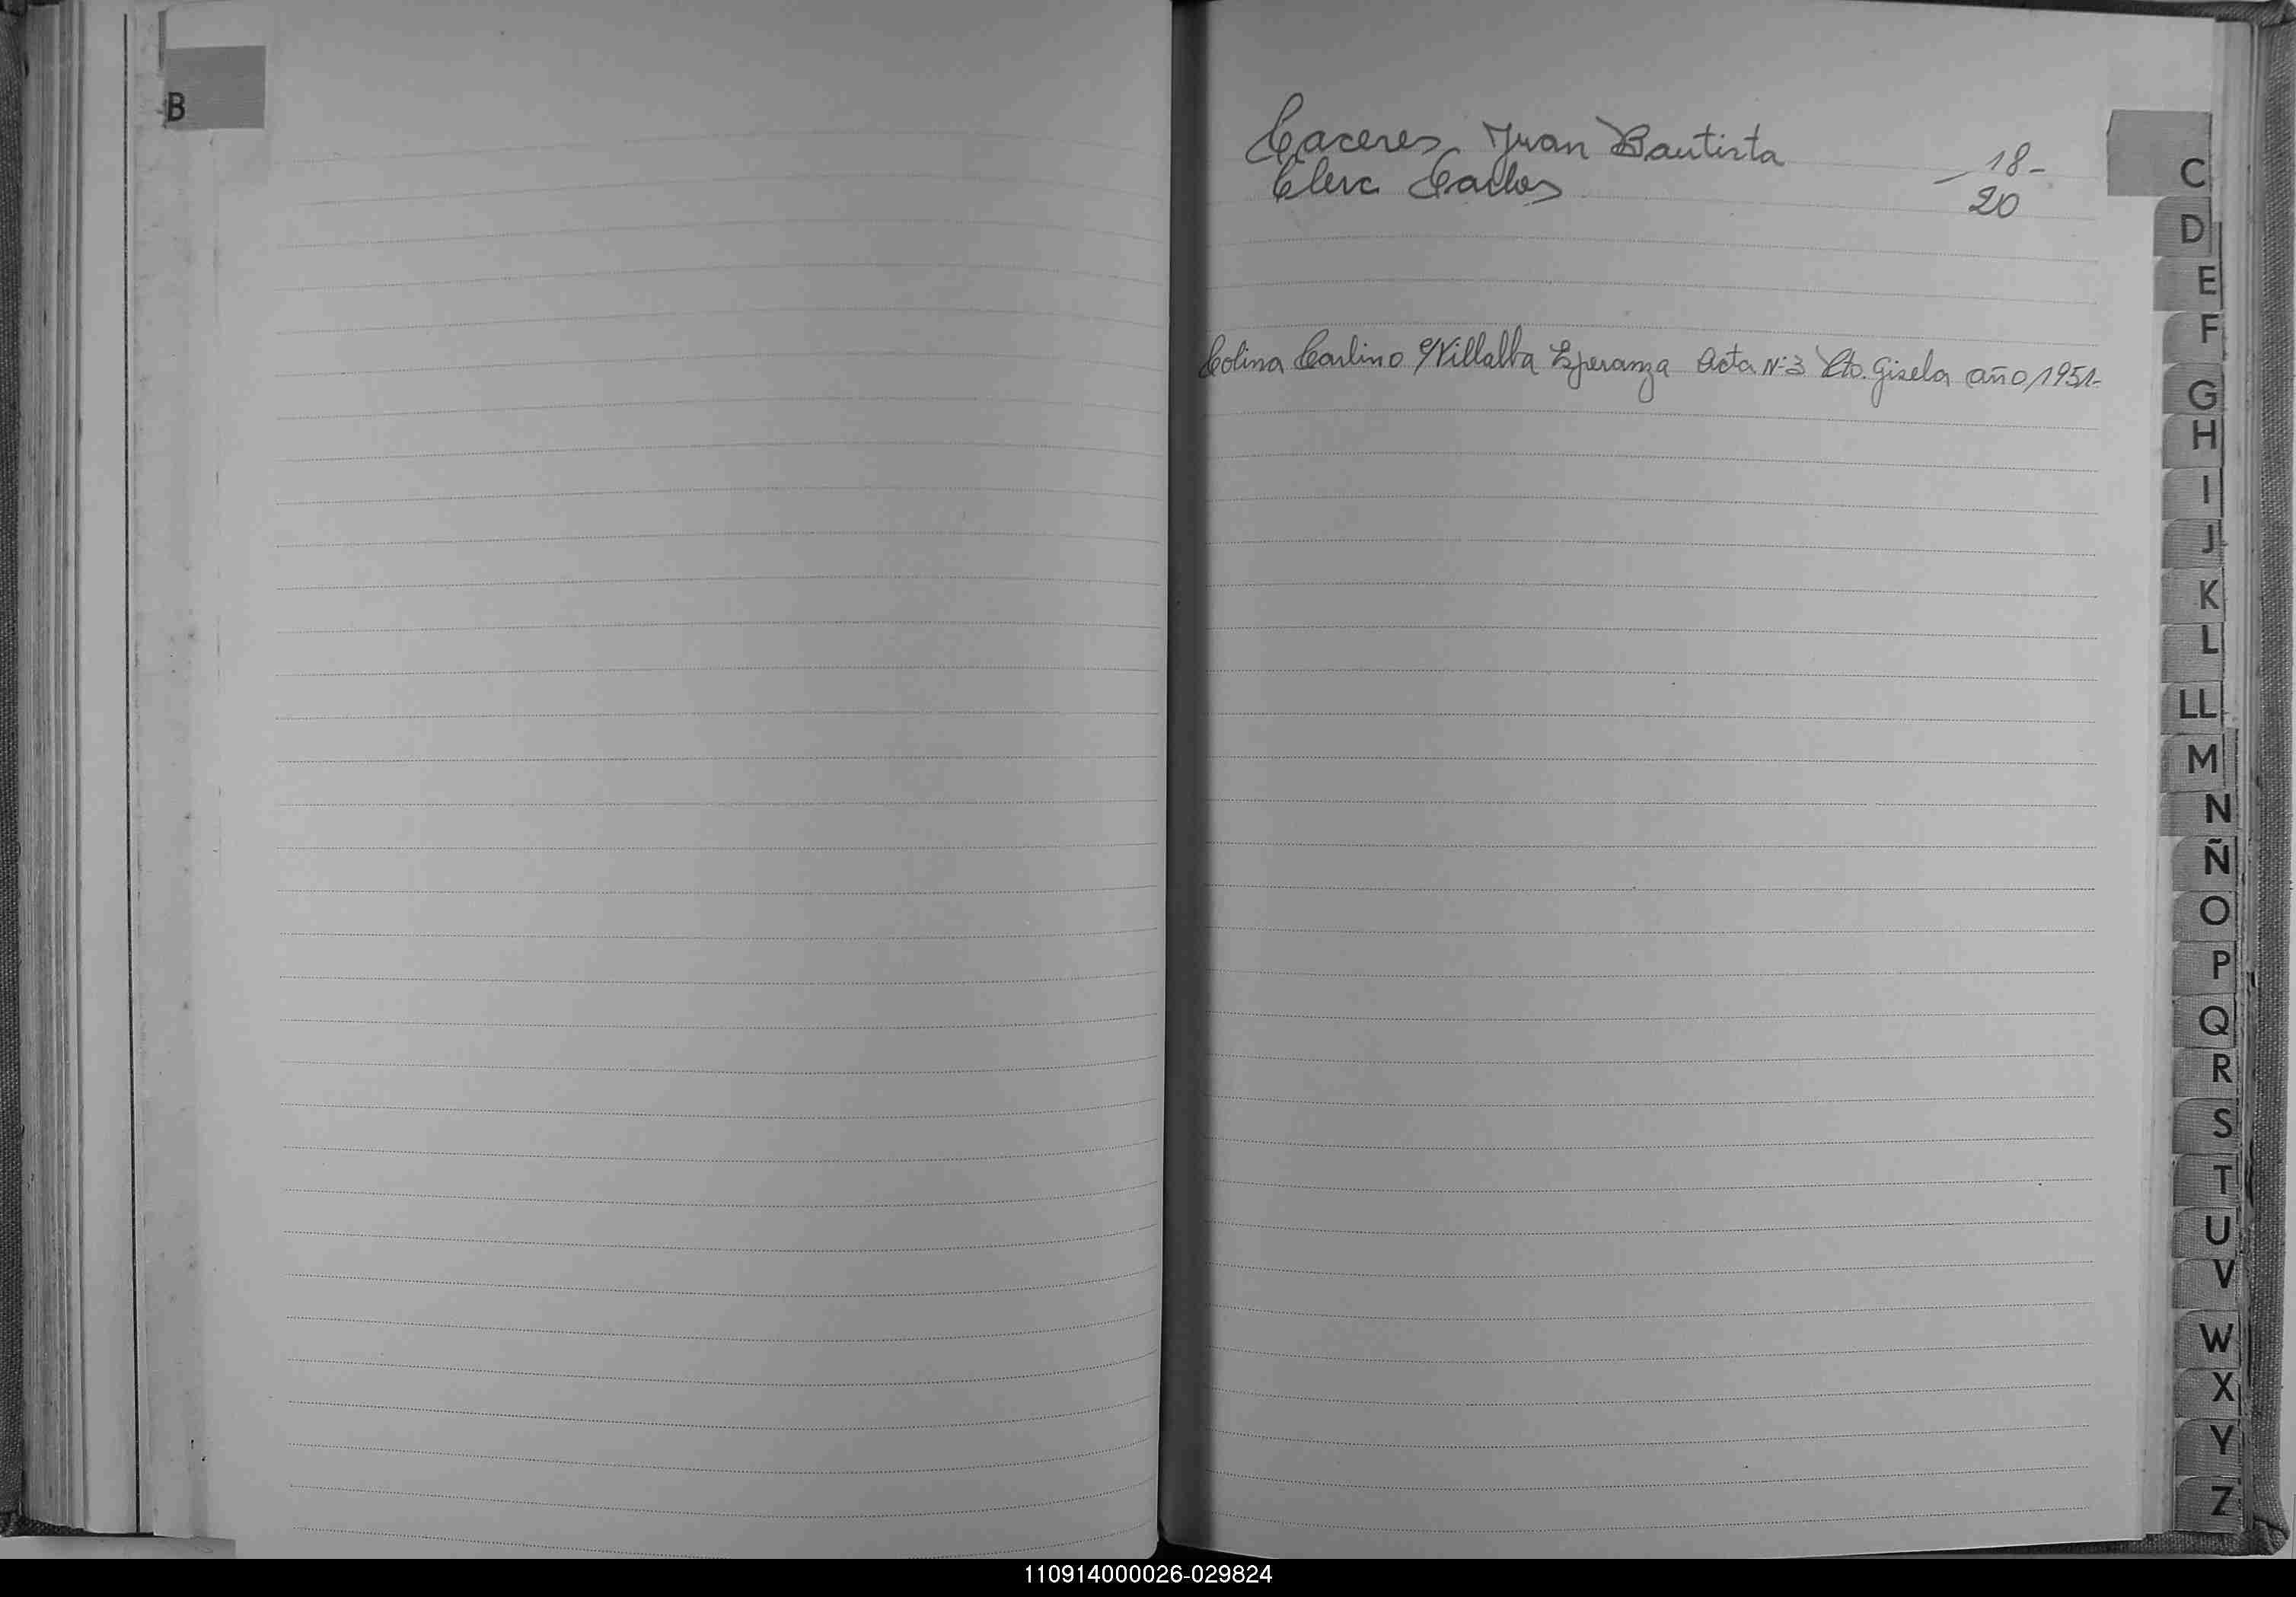 B
Caceres Juan Bautista 18-
Clerc Carlos 20
Colina Carlino c/Villalba Esperanza Acta Nº 3 Pto. Gisela año 1951-
C
D
E
F
G
H
I
J
K
L
LL
M
N
Ñ
O
P
Q
R
S
T
U
V
W
X
Y
Z
110914000026-029824